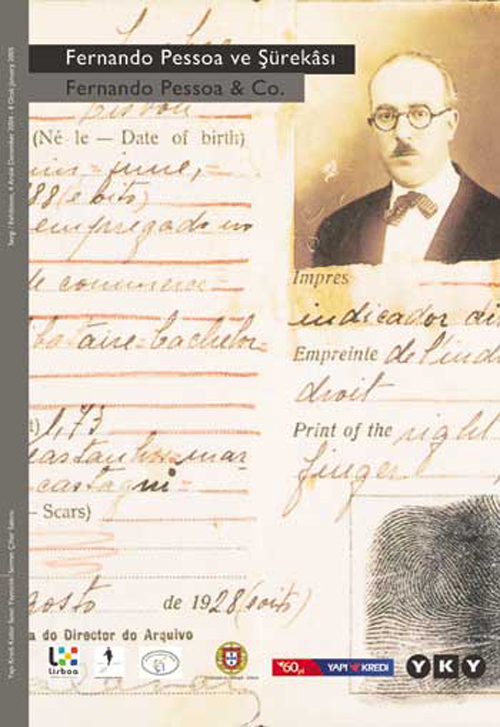 Fernando Pessoa ve Şürekâsı
Fernando Pessoa & Co.
Sergi / Exhibition, 4 Aralık December 2004 - 4 Ocak January 2005
Lisbon
(Né le — Date of birth)
june,
88 (e oito)
empregado no
de commerci-
bataire-bachelor
1,73
castanhos-mar
castagni
— Scars)
agosto de 1928 (oito)
a do Director do Arquivo
Impres
indicador di
Empreinte de l'ind
droit
Print of the right
finger
Lisboa
60.yıl YAPI KREDİ
YKY